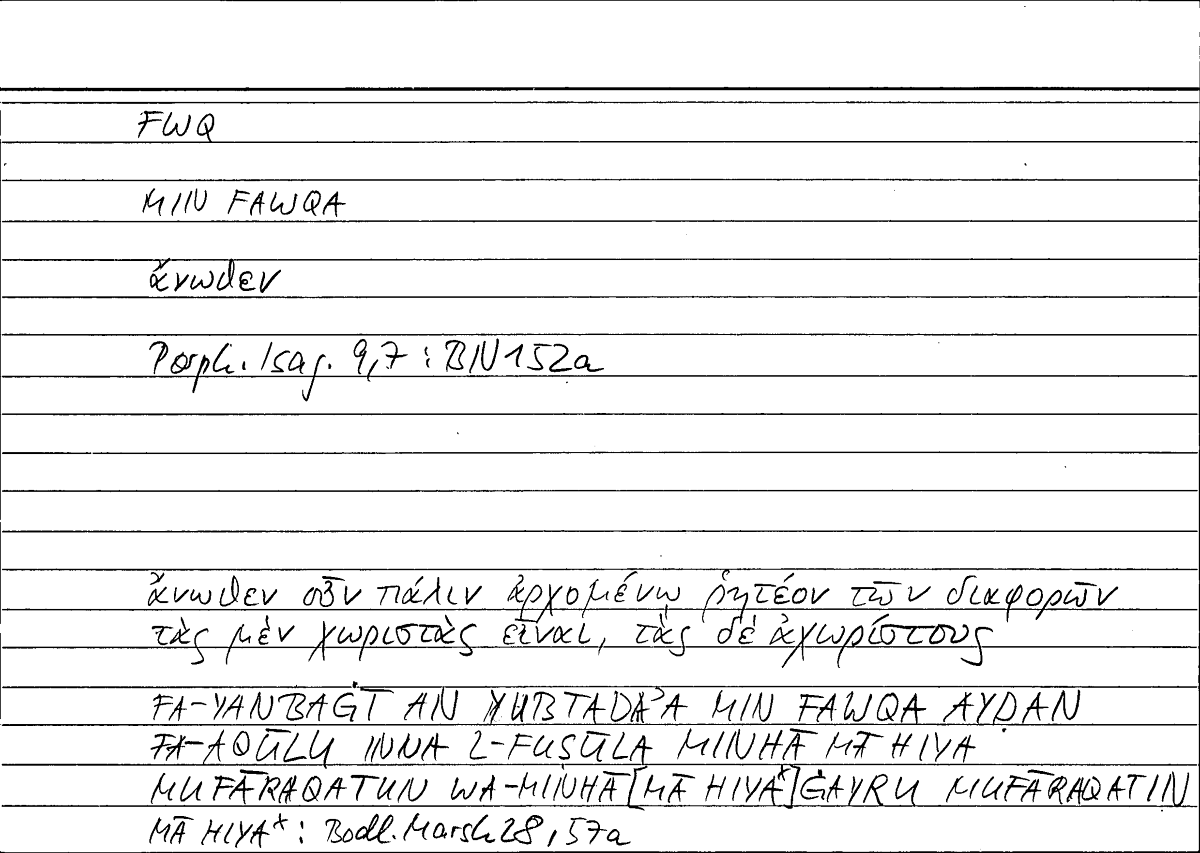 FWQ
MIN FAWQA
ἄνωθεν
Porph. Isag. 9,7 : BN 152a
ἄνωθεν οὖν πάλιν ἀρχομένῳ ῥητέον τῶν διαφορῶν
τὰς μὲν χωριστὰς εἶναι, τὰς δὲ ἀχωρίστους
FA-YANBAĠĪ AN YUBTADAʾA MIN FAWQA AYḌAN
FA-AQŪLU INNA L-FUṢŪLA MINHĀ MĀ HIYA
MUFĀRAQATUN WA-MINHĀ [MĀ HIYA*] ĠAYRU MUFĀRAQATIN
MĀ HIYA* : Bodl. Marsh 28, 57a